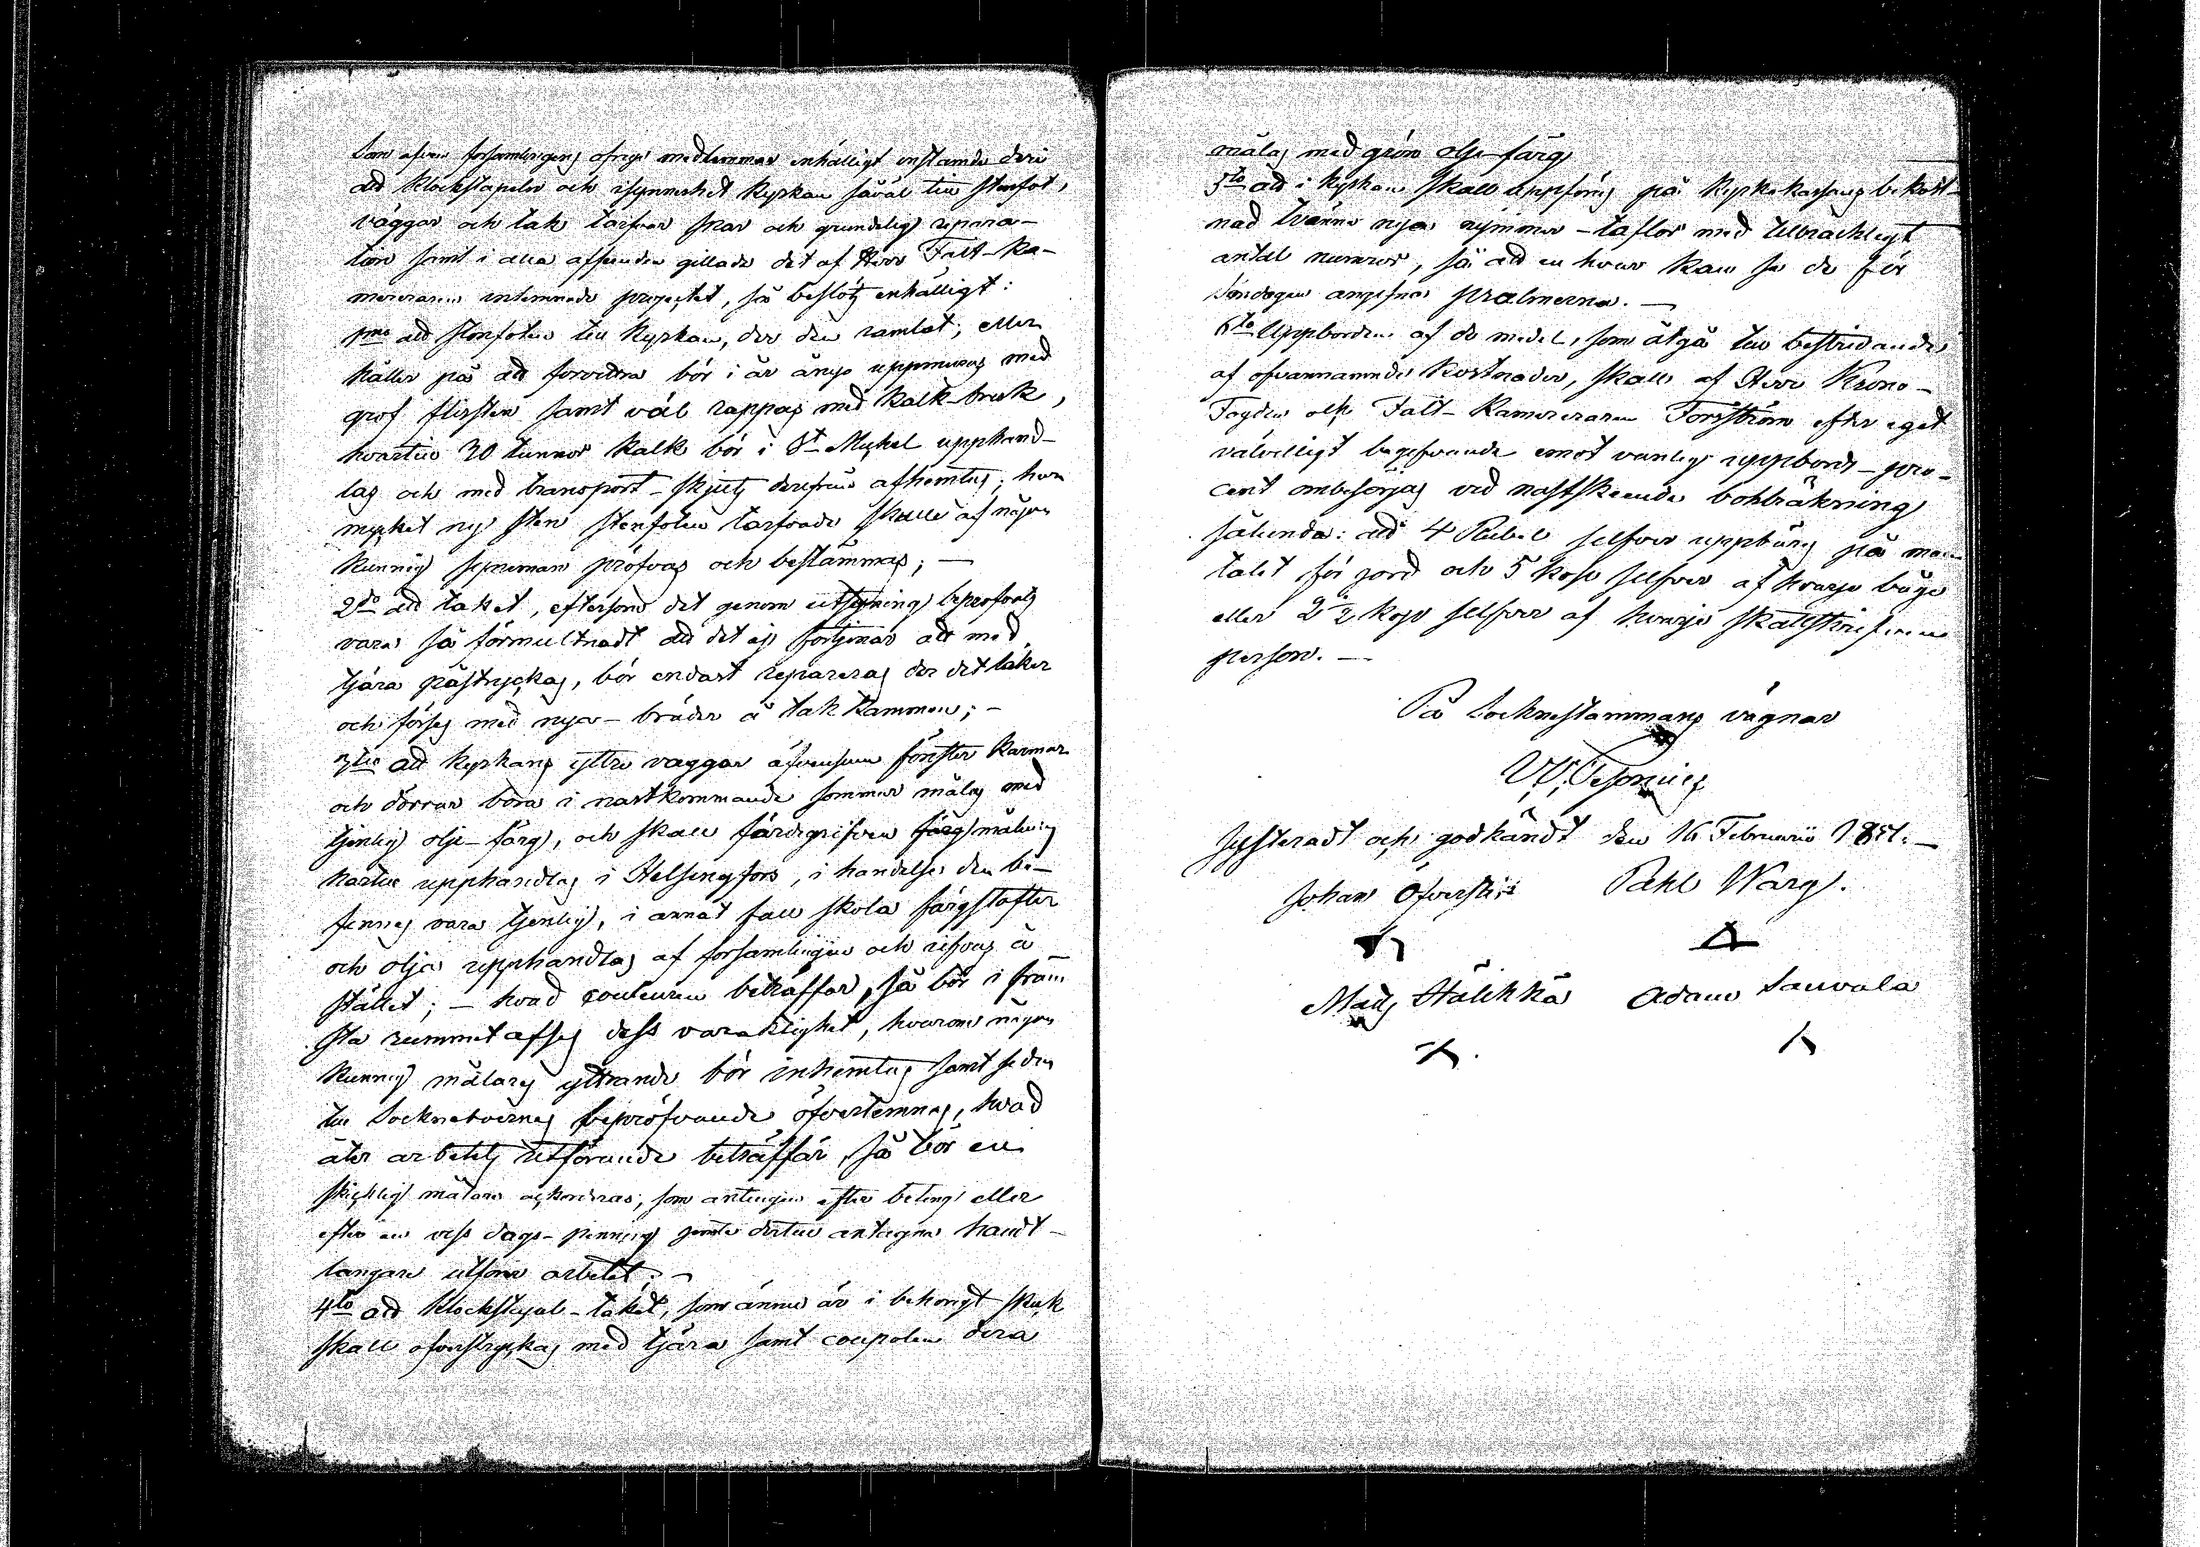 Som äfven församlingens öfrige medlemmar enhälligt instämde deri
att klockstapeln och isynnerhet kyrkan såväl till stenfot,
väggar och tak tarfvar snar och grundelig repara-
tion samt i alla afseenden gillade det af Herr Fält-Ka-
mereraren inlemnade projectet, så beslöts enhälligt:
1mo att stenfoten till Kyrkan, der den ramlat, eller
håller på att förvittra bör i år ånyo uppmuras med
grof flissten samt väl rappas med Kalk-bruk,
hvartill 30 tunnor kalk bör i St Mickel upphand-
las och med transport-skjuts derifrån afhemtas; huru
mycket ny sten stenfoten tarfvade skulle af någon
kunnig byggman pröfvas och bestämmas; —
2do att taket, eftersom det genom utsyning bepröfvats
vara så förmultnadt att det ej förtjenar att med
tjära påstryckas, bör endast repareras der det läker
och förses med nya-bräder å takkammen; –
3tio att kyrkans yttre väggar äfvensom fönster karmar
och dörrar böra i nästkommande sommar målas med
tjenlig olje-färg, och skall färdigrifven färg målning
härtill upphandlas i Helsingfors, i händelse den be-
finnes vara tjenlig, i annat fall skola färgstofter
och olja upphandlas af församlingen och rifvas å
stället; – hvad couleuren beträffar, så bör i främ
sta rummet afses dess varaktighet, hvarom någon
kunnig målares yttrande bör inhemtas samt sedan
till Socknetvernes bepröfvande öfverlemnas, hvad
åter arbetets utförande beträffar, så bör en
skicklig målare ackorderas, som antingen efter beting eller
efter en viss dags-penning jemte dertill antagne handt-
langare utförer arbetet. –
4to att klockstapel-taket, som ännu är i behörigt skick
skall öfverstryckas med tjära samt coupolen dera
målas med grön olje-färg
5to att i kyrkan skall uppföras på Kyrkokassans bekost-
nad tvänne nya nummer-taflor med tillräckligt
antal numror, så att en hvar kan se de för
Söndagen angifna psalmerna. —
6to Uppbörden af de medel, som åtgå till bestridande
af ofvannämnde kostnader, skall af Herr Krono-
Fogden och Fält-Kamereraren Forsström efter eget
välvilligt begifvande emot vanlig uppbörds-pro-
cent ombesörjas vid nästskeende bohlräkning
sålunda: att 4 Rubel silfver uppbäres på man-
talet för jord och 5 kop silfver af hvarje båge
eller 2½ kop silfver af hvarje skattskrifven
person. —
På Socknestämmans vägnar
W. Fesonius
Justeradt och godkändt den 16 Februarii 1851. —
Johan Öfverstis Pahl Warg.
Mats Hälikkä Adam Sauvala